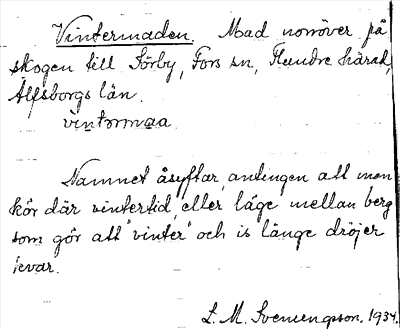 Vintermaden. Mad norröver på
skogen till Sörby, Fors sn, Flundre härad,
Älfsborgs län.
vintərmaa
Namnet åsyftar antingen att man
kör där vintertid, eller läge mellan berg
som gör att "vinter" och is länge dröjer
kvar.
L. M. Svenungsson. 1934.